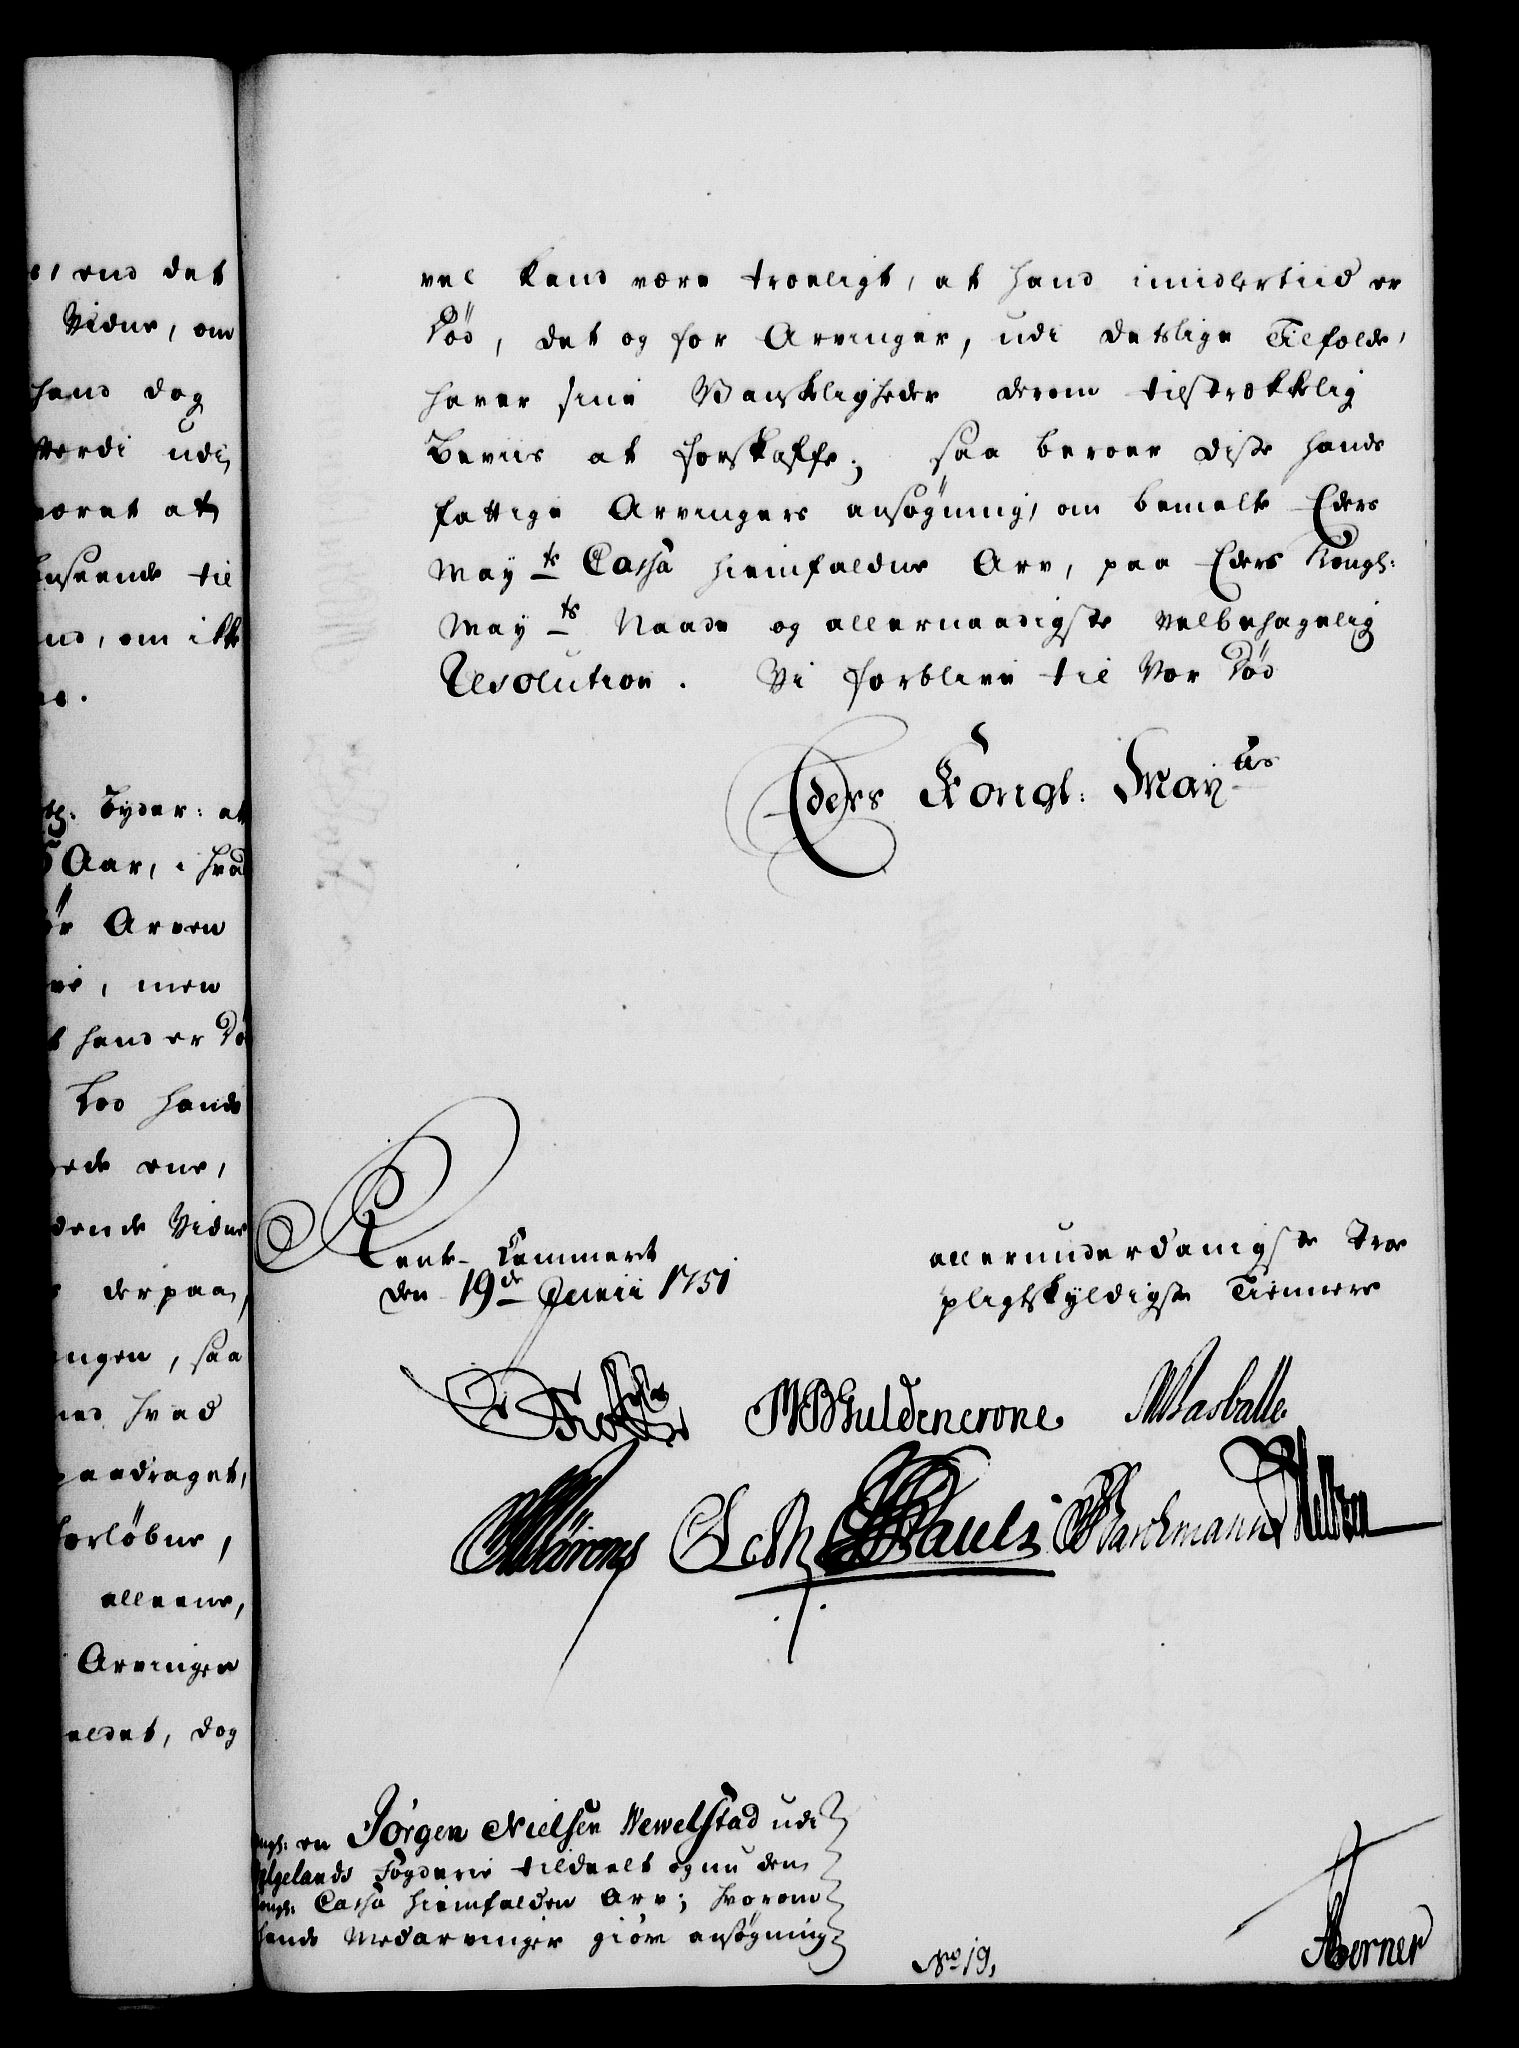 end det
Vidne, om
hand dog
værdi udi
været at
Anseende til
end, om ikke
Byder: at
Aar, i hvad
Arven
men
hand er Dø
Lod hands
ene,
Vidne
derpaa,
saa
hvad
paadraget,
forløbne,
alleene,
Arvinger
dog
vel kand være troeligt, at hand imidlertiid er
Død, det og for Arvinger, udi deslige Tilfælde,
haver sine Vanskeligheder derom tilstrækkelig
Beviis at forskaffe; saa beroer disse hands
fattige Arvingers ansøgning, om bemelte Eders
May:ts Cassa hiemfaldne Arv, paa Eders Kongl:
May:ts Naade og allernaadigste velbehagelig
Resolution. Vi forblive til Vor Død
Eders Kongl: May:ts
Rente-Cammeret
den 19de Junii 1751
allerunderdanigste troe
pligtskyldigste Tiennere
MBGuldencrone
Pauli
Angl: en Jörgen Nielsen Newelstad udi
Helgelands Fogderie tildeelt og nu den
Kongl: Cassa hiemfalden Arv; hvorom
hands Medarvinger giör ansøgning
No 19,
Berner